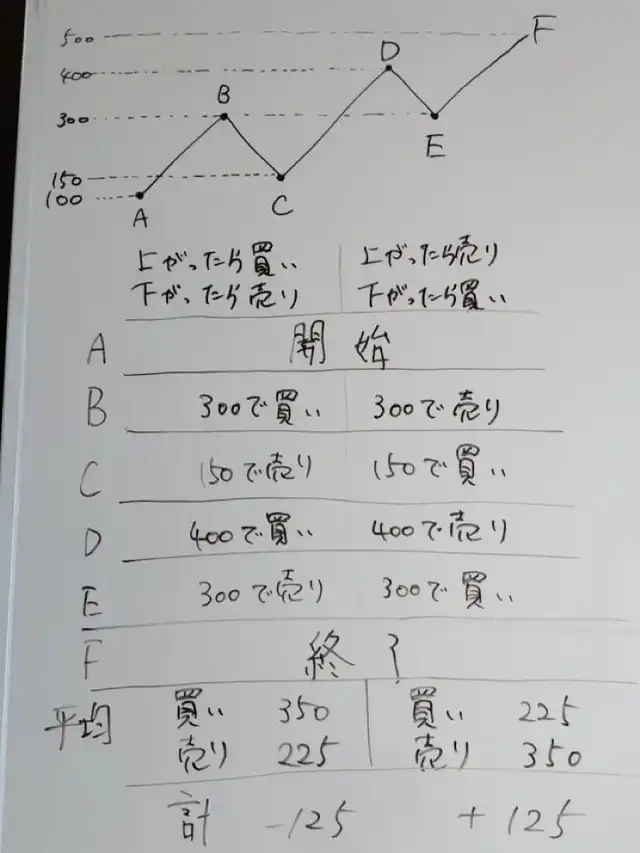 500
F
400
D
B
300
E
150
C
100
A
上がったら買い 上がったら売り
下がったら売り 下がったら買い
A 開始
B 300で買い 300で売り
C 150で売り 150で買い
D 400で買い 400で売り
E 300で売り 300で買い
F 終了
平均 買い 350 買い 225
売り 225 売り 350
計 -125 +125